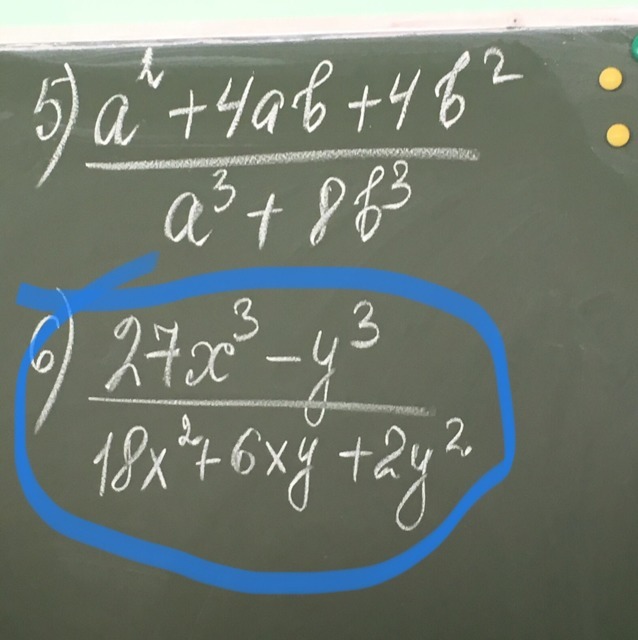 5) a² + 4ab + 4b²
a³ + 8b³
6) 27x³ - y³
18x² + 6xy + 2y²